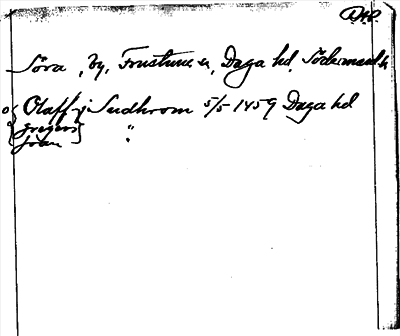 Söra, by, Frustuna sn, Daga hd, Södermanl.
Olaff i Sudhrom 5/5 1459 Daga hd
gregers "
Joan